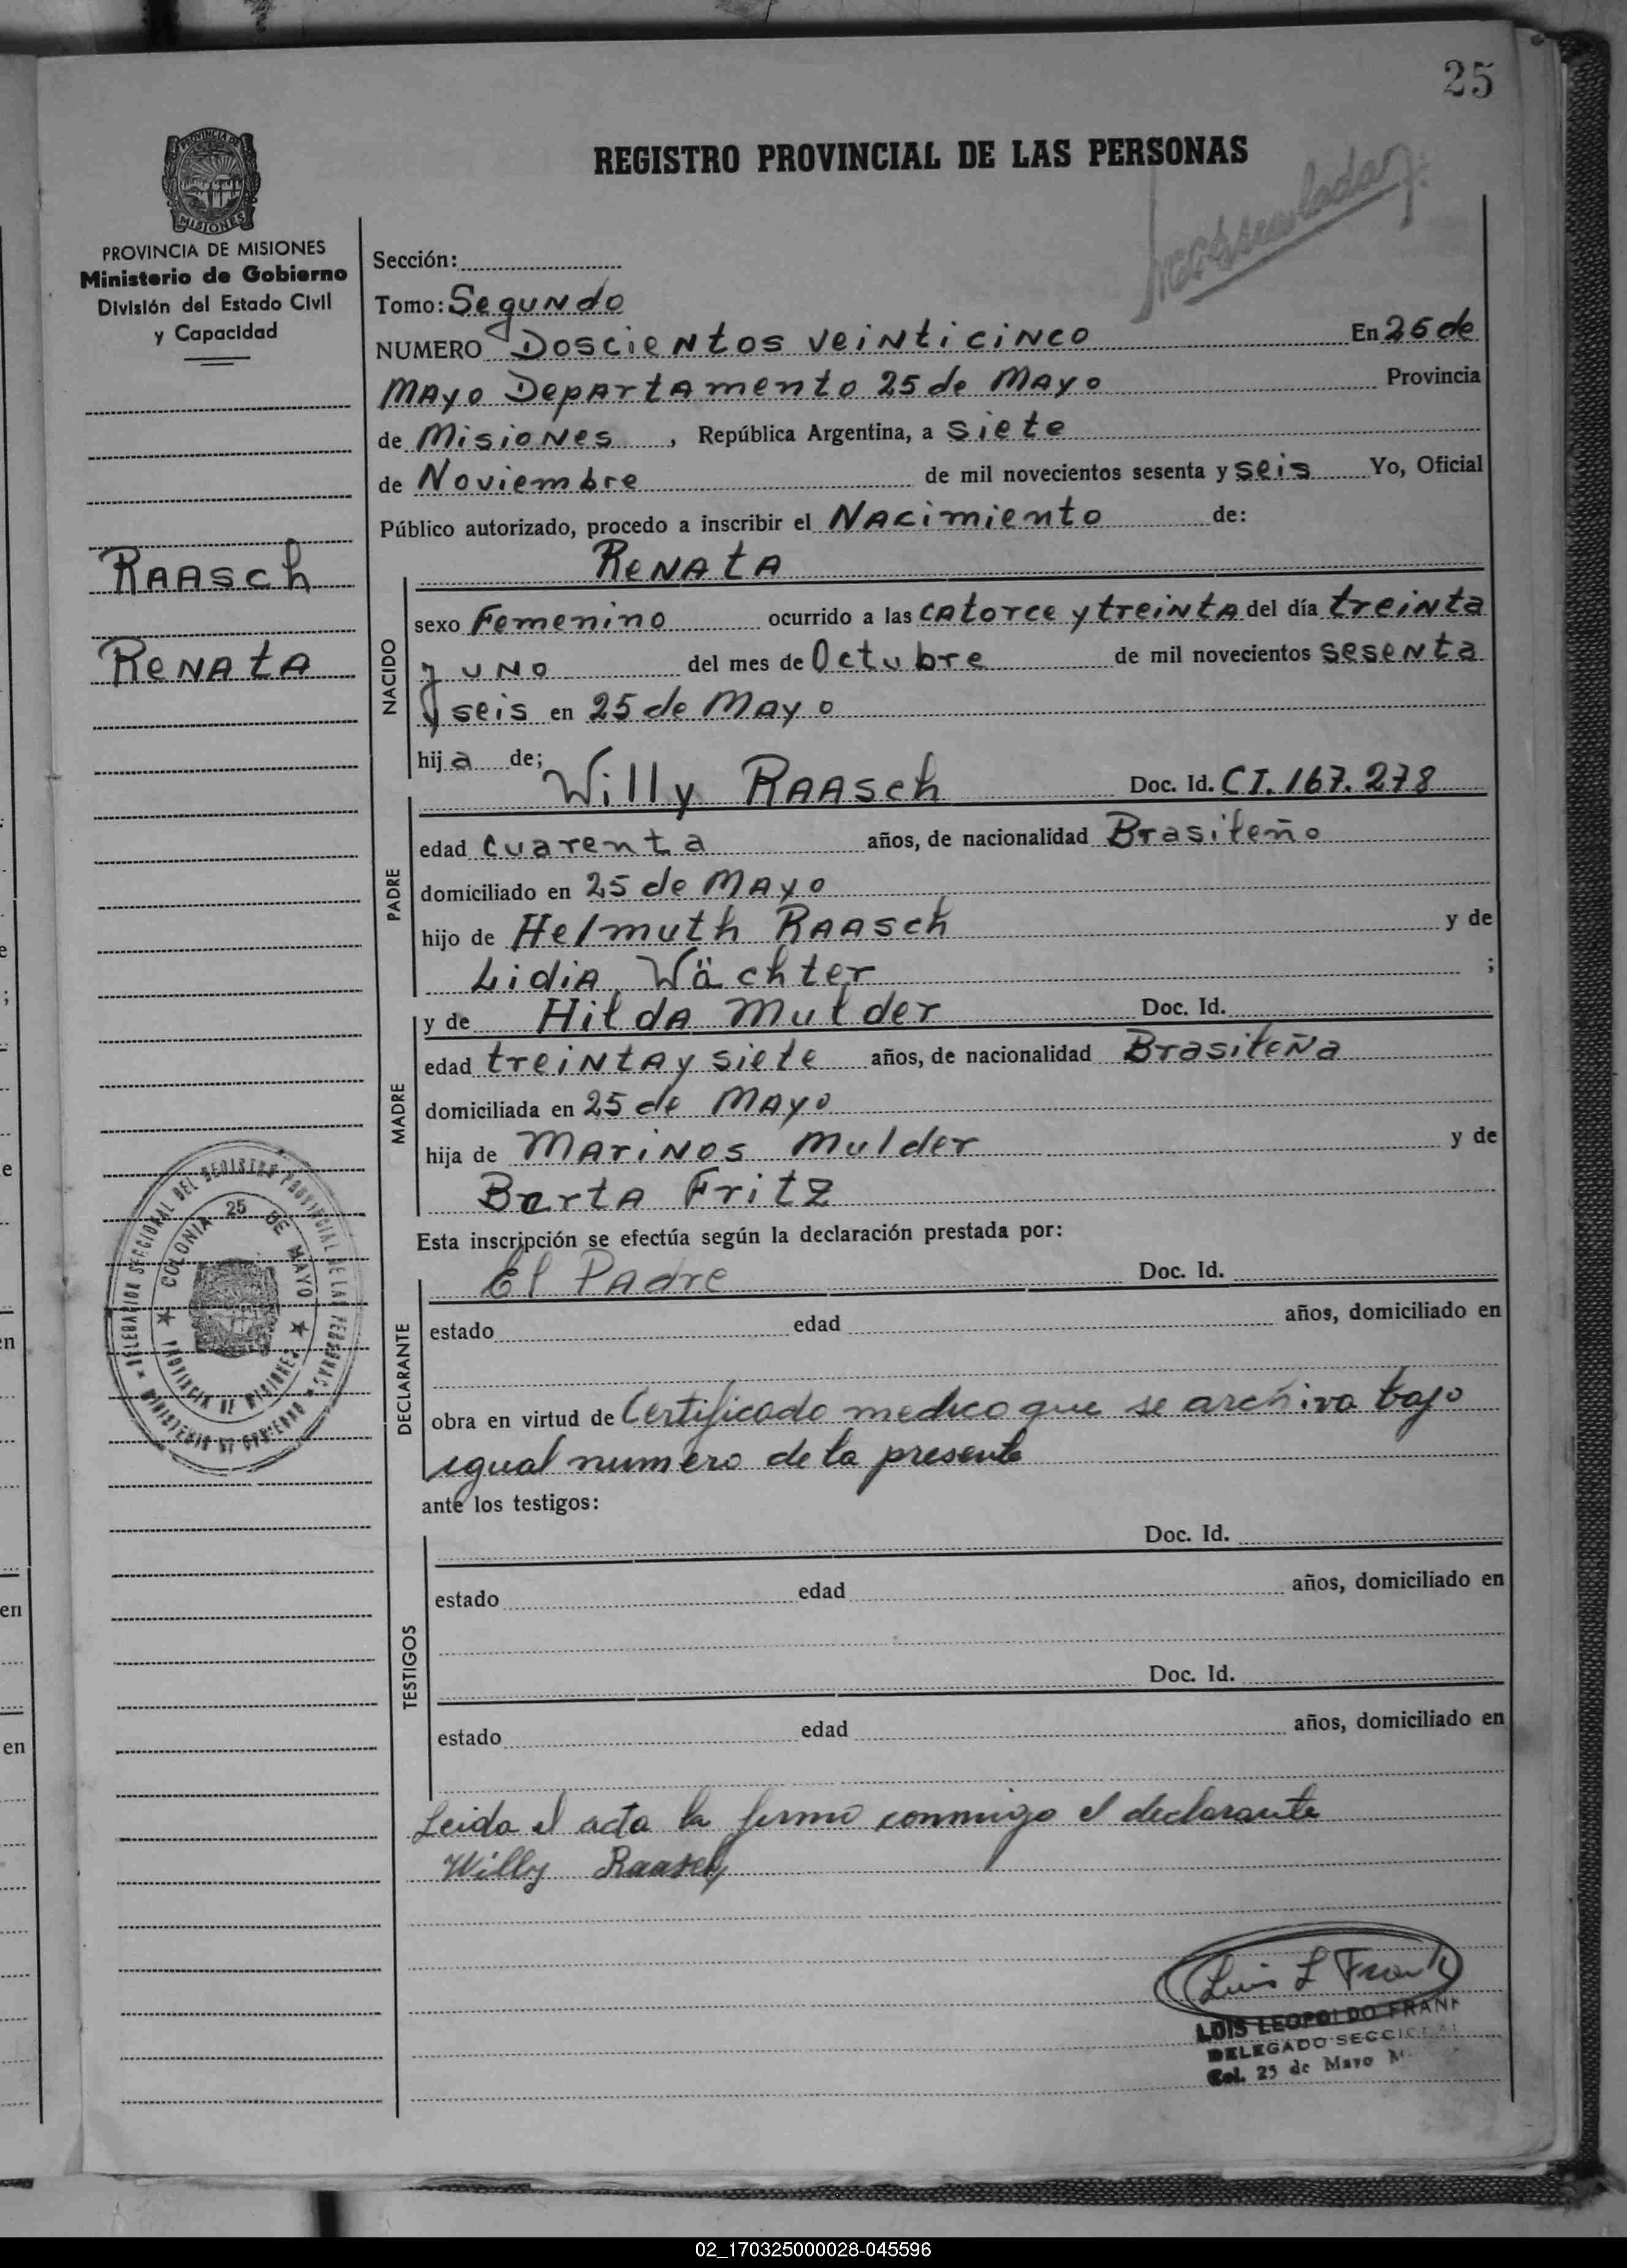 25
REGISTRO PROVINCIAL DE LAS PERSONAS
PROVINCIA DE MISIONES
PROVINCIA DE MISIONES
Ministerio de Gobierno
División del Estado Civil
y Capacidad
RAASch
RENAtA
DELEGACION SECCIONAL DEL REGISTRO PROVINCIAL DE LAS PERSONAS
MINISTERIO DE GOBIERNO
COLONIA 25 DE MAYO
PROVINCIA DE MISIONES
Sección:
Tomo: Segundo
NUMERO Doscientos veinticinco En 25 de
Mayo Departamento 25 de Mayo Provincia
de Misiones, República Argentina, a siete
de Noviembre de mil novecientos sesenta y seis Yo, Oficial
Público autorizado, procedo a inscribir el Nacimiento de:
RENAtA
NACIDO
sexo Femenino ocurrido a las catorce y treinta del día treinta
y uno del mes de Octubre de mil novecientos sesenta
y seis en 25 de Mayo
hija de;
Willy RAASch Doc. Id. CI. 167.278
PADRE
edad cuarenta años, de nacionalidad Brasileño
domiciliado en 25 de Mayo
hijo de Helmuth RAASch y de
Lidia Wächter ;
y de Hilda Mulder Doc. Id.
MADRE
edad treinta y siete años, de nacionalidad Brasileña
domiciliada en 25 de Mayo
hija de Marinos Mulder y de
Berta Fritz
Esta inscripción se efectúa según la declaración prestada por:
El Padre Doc. Id.
DECLARANTE
estado edad años, domiciliado en
obra en virtud de Certificado medico que se archiva bajo
igual numero de la presente
ante los testigos:
Doc. Id.
TESTIGOS
estado edad años, domiciliado en
Doc. Id.
estado edad años, domiciliado en
Leida el acta la firma conmigo el declarante
Willy Raasch
Luis L Frank
LUIS LEOPOLDO FRANK
DELEGADO SECCIONAL
Col. 25 de Mayo
02_170325000028-045596